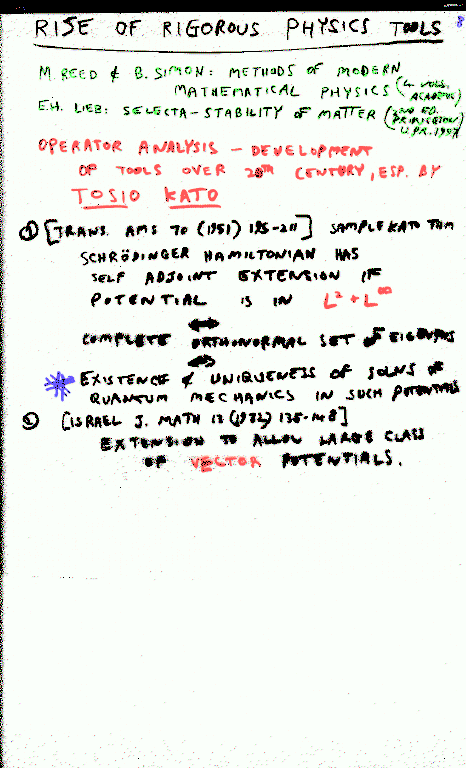 RISE OF RIGOROUS PHYSICS TOOLS
8
M. REED & B. SIMON: METHODS OF MODERN
MATHEMATICAL PHYSICS (4 VOLS, ACADEMIC)
E.H. LIEB: SELECTA - STABILITY OF MATTER (2ND ED. PRINCETON U.PR. 1997
OPERATOR ANALYSIS - DEVELOPMENT
OF TOOLS OVER 20TH CENTURY, ESP. BY
TOSIO KATO
① [TRANS. AMS 70 (1951) 195-211] SAMPLE KATO THM
SCHRÖDINGER HAMILTONIAN HAS
SELF ADJOINT EXTENSION IF
POTENTIAL IS IN L² + L∞
↔
COMPLETE ORTHONORMAL SET OF
↔
* EXISTENCE & UNIQUENESS OF SOLNS OF
QUANTUM MECHANICS IN SUCH POTENTIALS
② [ISRAEL J. MATH 13 (1972) 135-148]
EXTENSION TO ALLOW LARGE CLASS
OF VECTOR POTENTIALS.